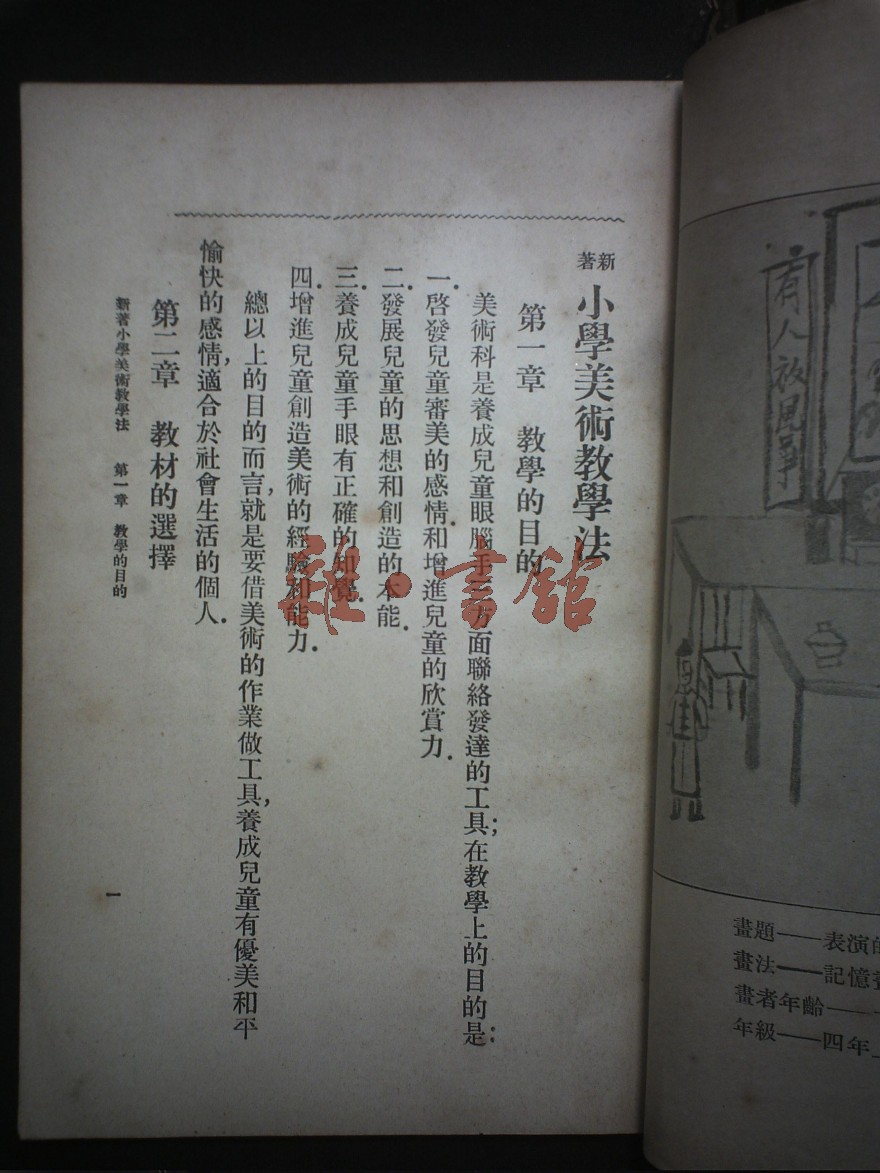 新著 小學美術教學法
第一章 教學的目的
美術科是養成兒童眼腦手三方面聯絡發達的工具;在教學上的目的是:
一.啓發兒童審美的感情.和增進兒童的欣賞力.
二.發展兒童的思想和創造的本能.
三.養成兒童手眼有正確的知覺.
四.增進兒童創造美術的經驗和能力.
總以上的目的而言,就是要借美術的作業做工具,養成兒童有優美和平
愉快的感情,適合於社會生活的個人.
第二章 教材的選擇
新著小學美術教學法 第一章 教學的目的
一
有人
畫題——表演
畫法——記憶
畫者年齡——
年級——四年
雅·書館